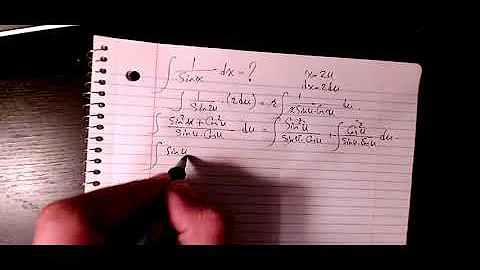 ∫ 1/sinx dx = ? x=2u
dx=2du
∫ 1/sin2u · (2du) = 2∫ 1/2sinu·cosu du
∫ sin²u+cos²u/sinu·cosu du = ∫ sin²u/sinu·cosu + ∫ cos²u/sinu·cosu du
∫ sinu